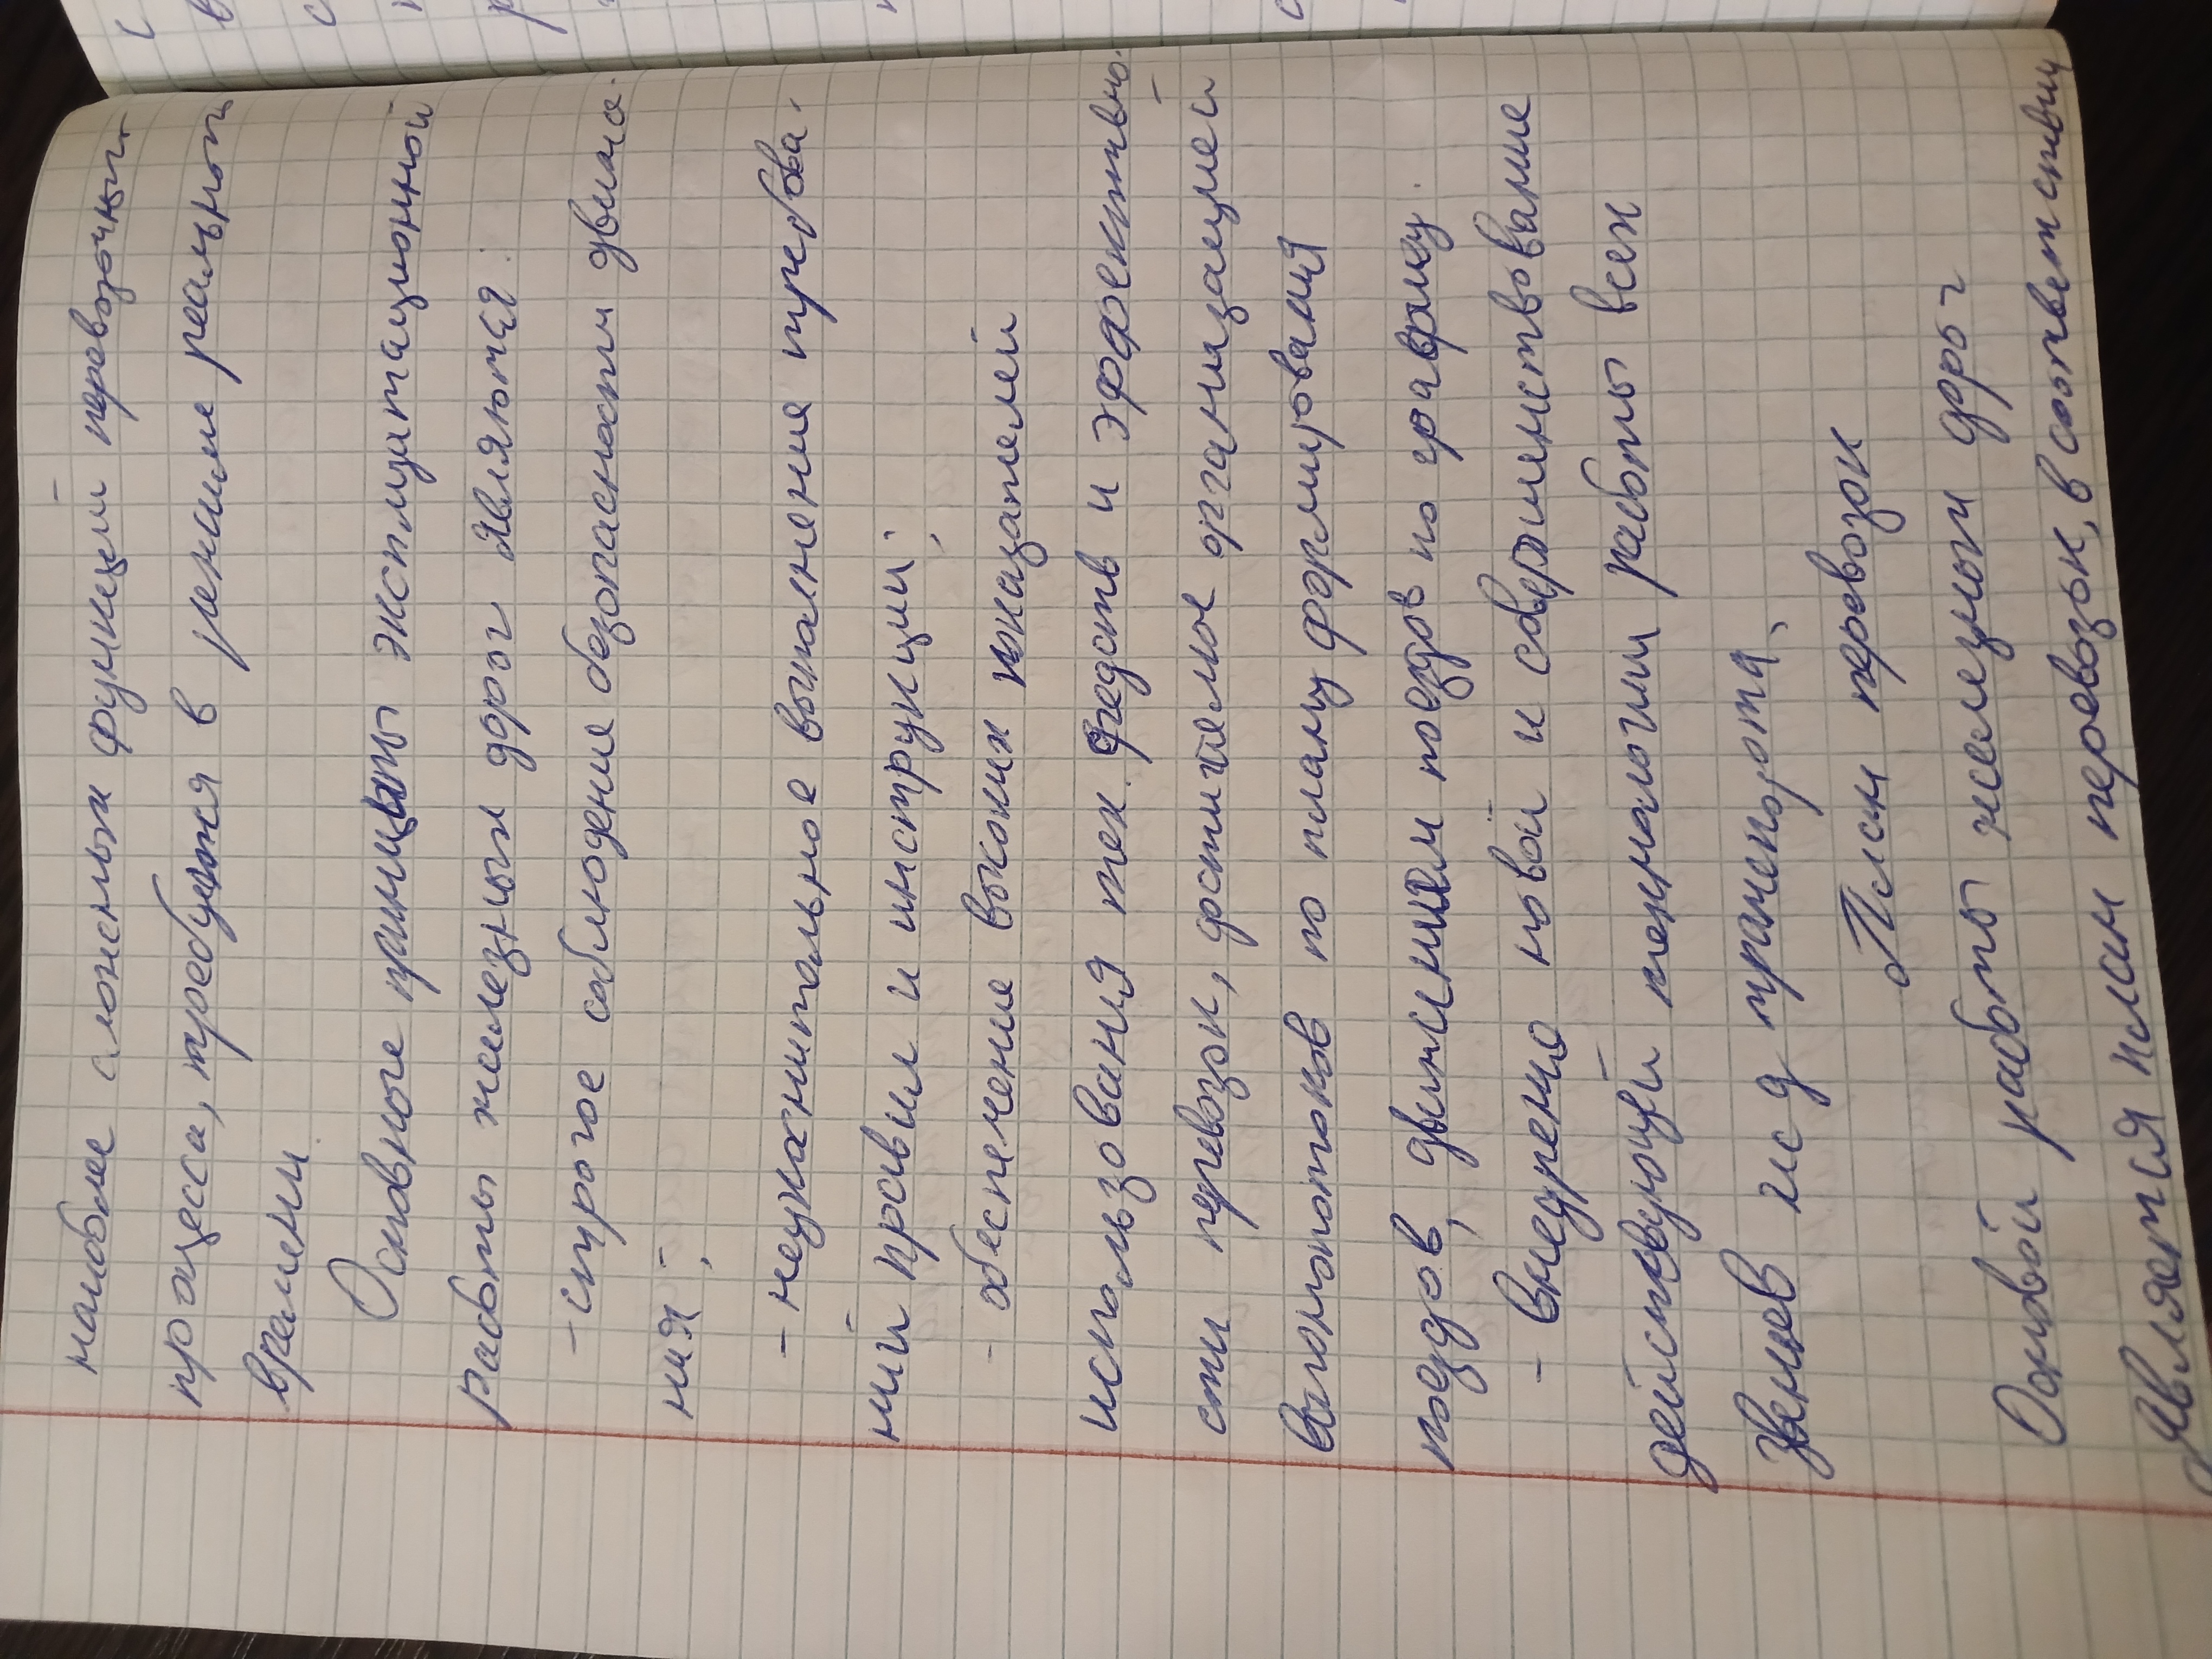 наиболее сложных функций перевозочн
процесса, требуются в режиме реальном
времени.
Основные принципы эксплуатационной
работы железных дорог являются:
- строгое соблюдение безопасности движе-
ния;
- неукоснительное выполнение требова-
ний правил и инструкций;
- обеспечение высоких показателей
использования тех. средств и эффективно-
сти перевозок, достигаемое организацией
вагонопотоков по плану формирования
поездов, движением поездов по графику.
- внедрение новой и совершенствование
действующей технологии работы всех
звеньев ж д транспорта.
План перевозок
Основой работы железной дорог
является план перевозок, в соответствии